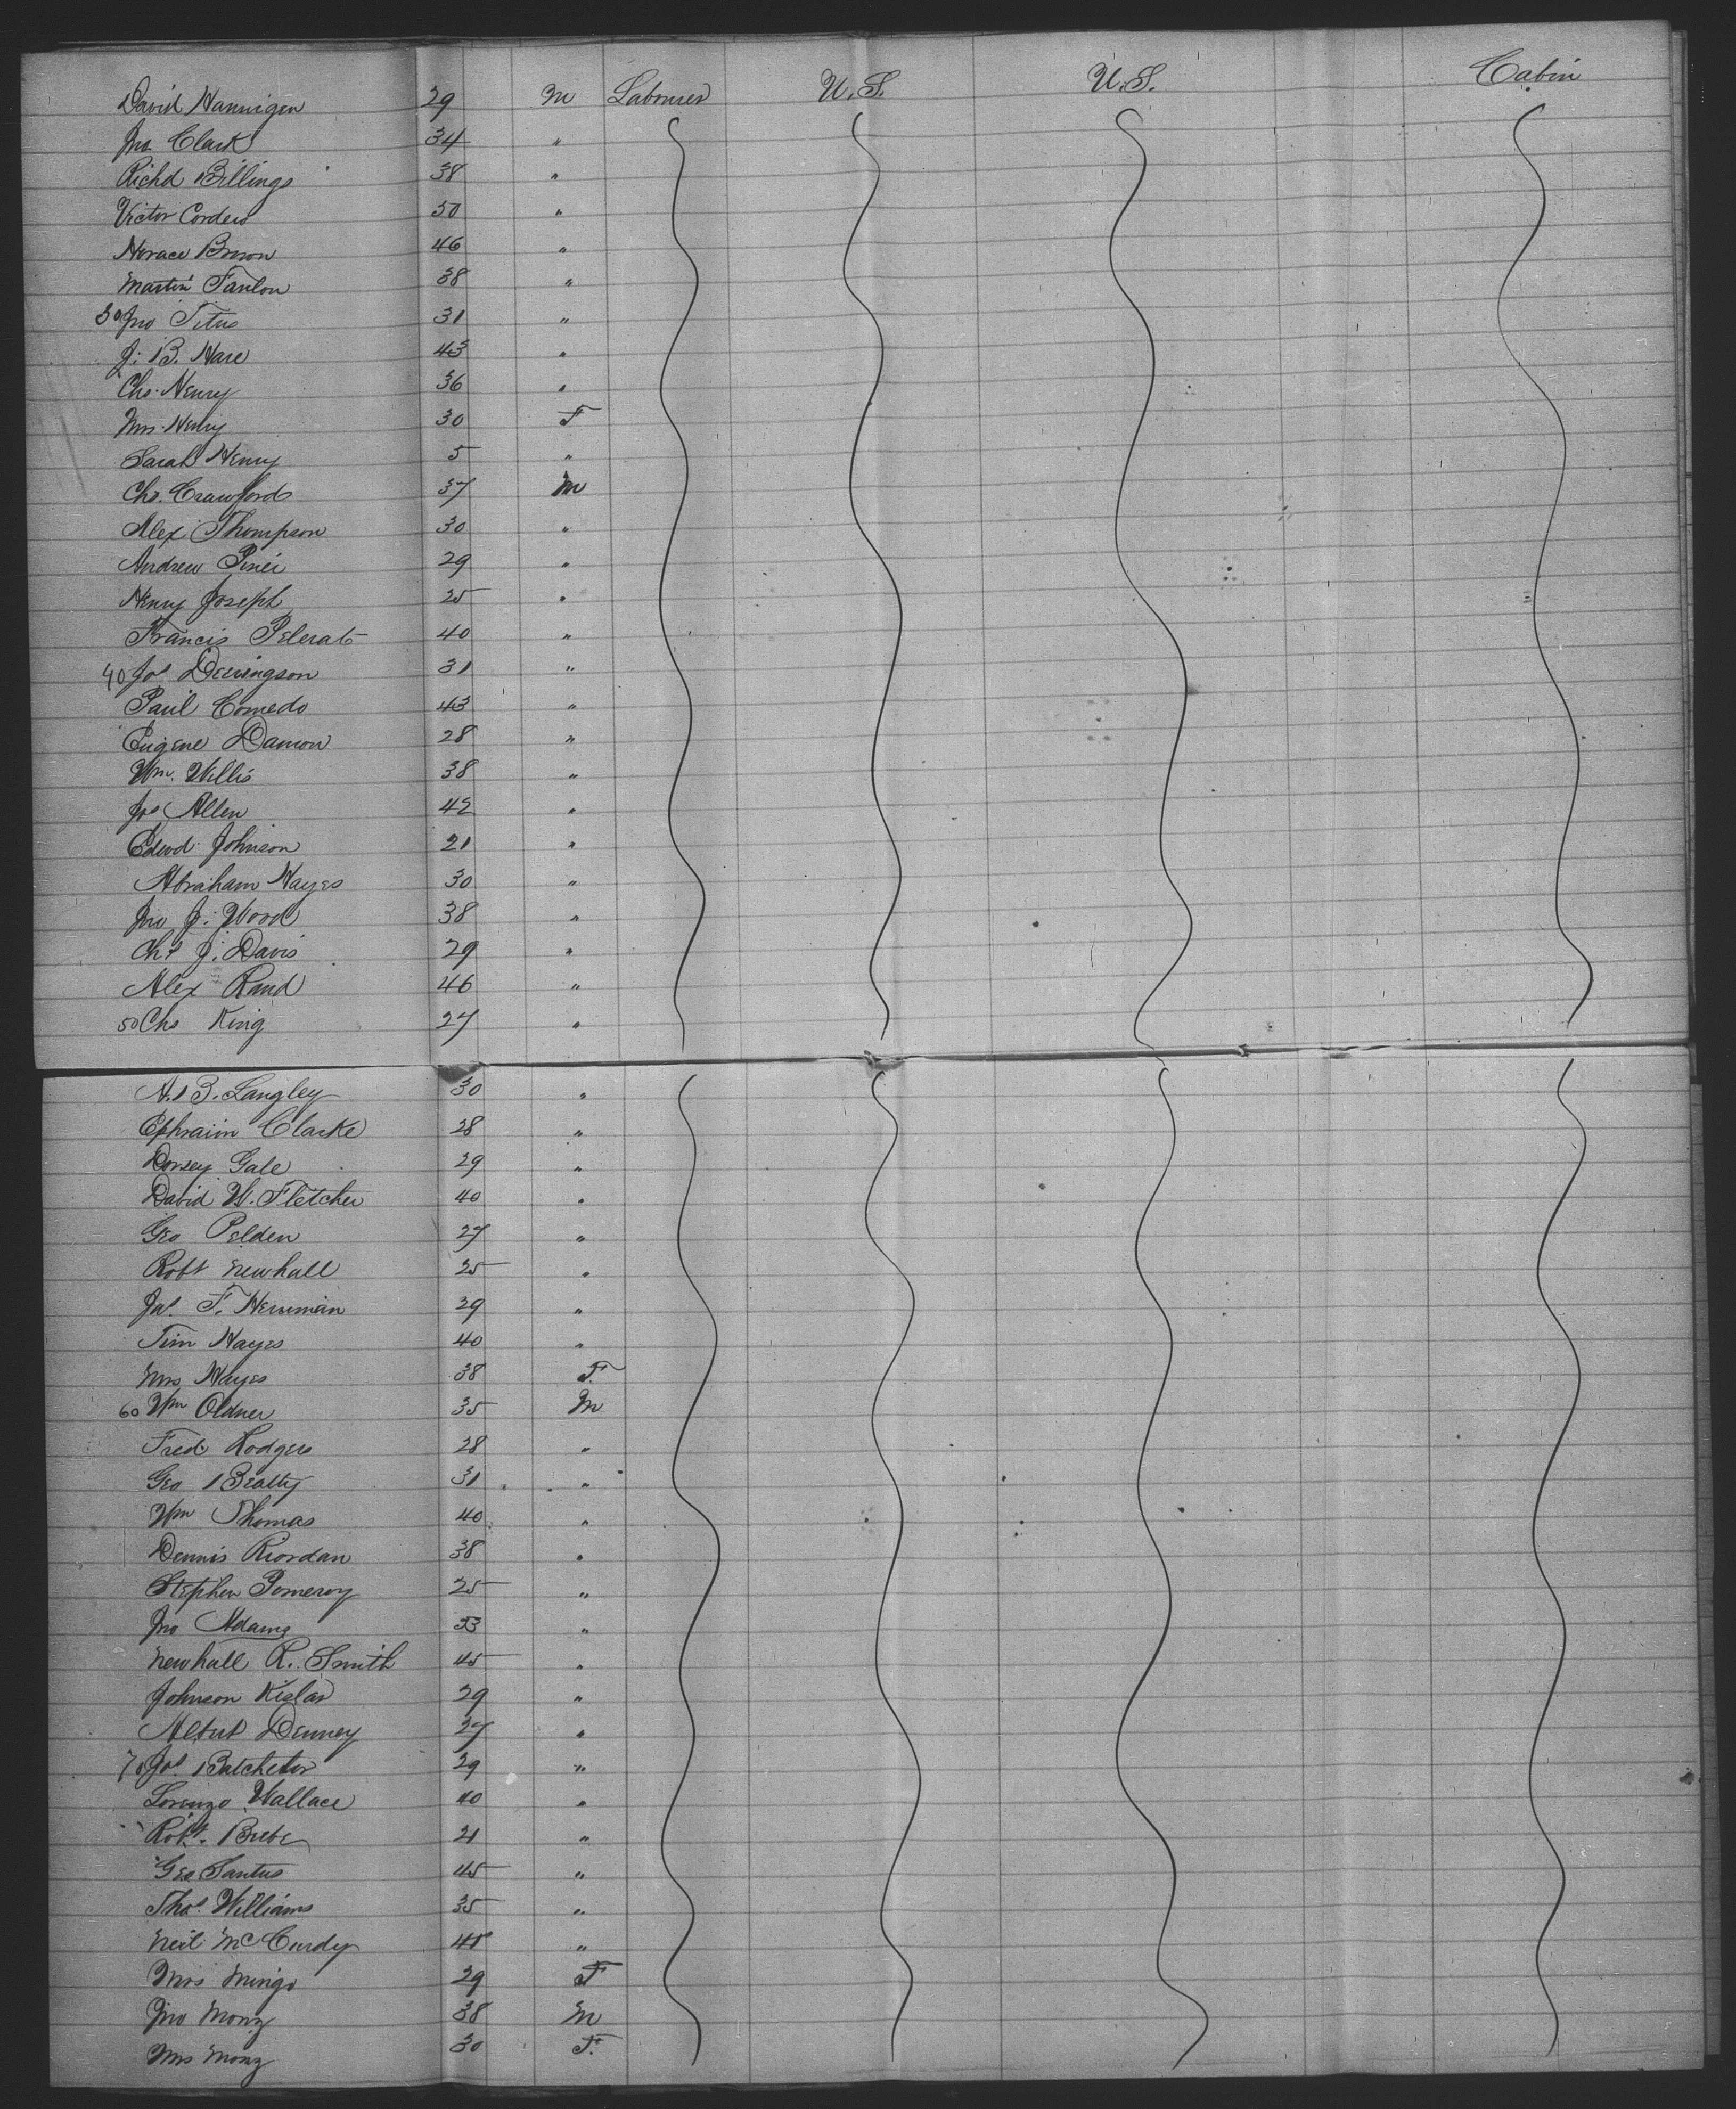 David Hannigen 29 M Labourer U.S. U.S. Cabin
Jno Clark 34 "
Richd Billings 38 "
Victor Cordero 30 "
Horace Brown 46 "
Martin Fanlon 38 "
30 Jno Titus 31 "
J. B. Hare 43 "
Chs. Henry 36 "
Mrs. Henry 30 F
Sarah Henry 5 "
Chs. Crawford 37 M
Alex Thompson 30 "
Andrew Piner 29 "
Henry Joseph 25 "
Francis Pelerat 40 "
40 Jos 31 "
Paul Comedo 43 "
Eugene Damon 28 "
Wm. Willis 38 "
Jos Allen 42 "
Edwd. Johnson 21 "
Abraham Hayes 30 "
Jno J. Wood 38 "
Chs J. Davis 29 "
Alex Rand 46 "
50 Chs King 27 "
A. B. Langley 30 "
Ephraim Clarke 28 "
Dorsey Gale 29 "
David W. Fletcher 40 "
Geo Pelden 27 "
Robt Newhall 25 "
Jas. F. Newman 29 "
Tim Hayes 40 "
Mrs Hayes 38 F.
60 Wm Oldner 35 M
Fred Rodgers 28 "
Geo Beatty 31 "
Wm Thomas 40 "
Dennis Riordan 38 "
Stephen Pomeroy 25 "
Jno Adams 33 "
Newhall R. Smith 45 "
Johnson 29 "
Albert Denney 27 "
70 Jos. Batchelor 29 "
Lorenzo Wallace 40 "
Robt. Beebe 21 "
Geo Santus 45 "
Thos. Williams 35 "
Neil McCurdy 41 "
Mrs Mingo 29 F
Jno Monz 38 M
Mrs Monz 30 F.